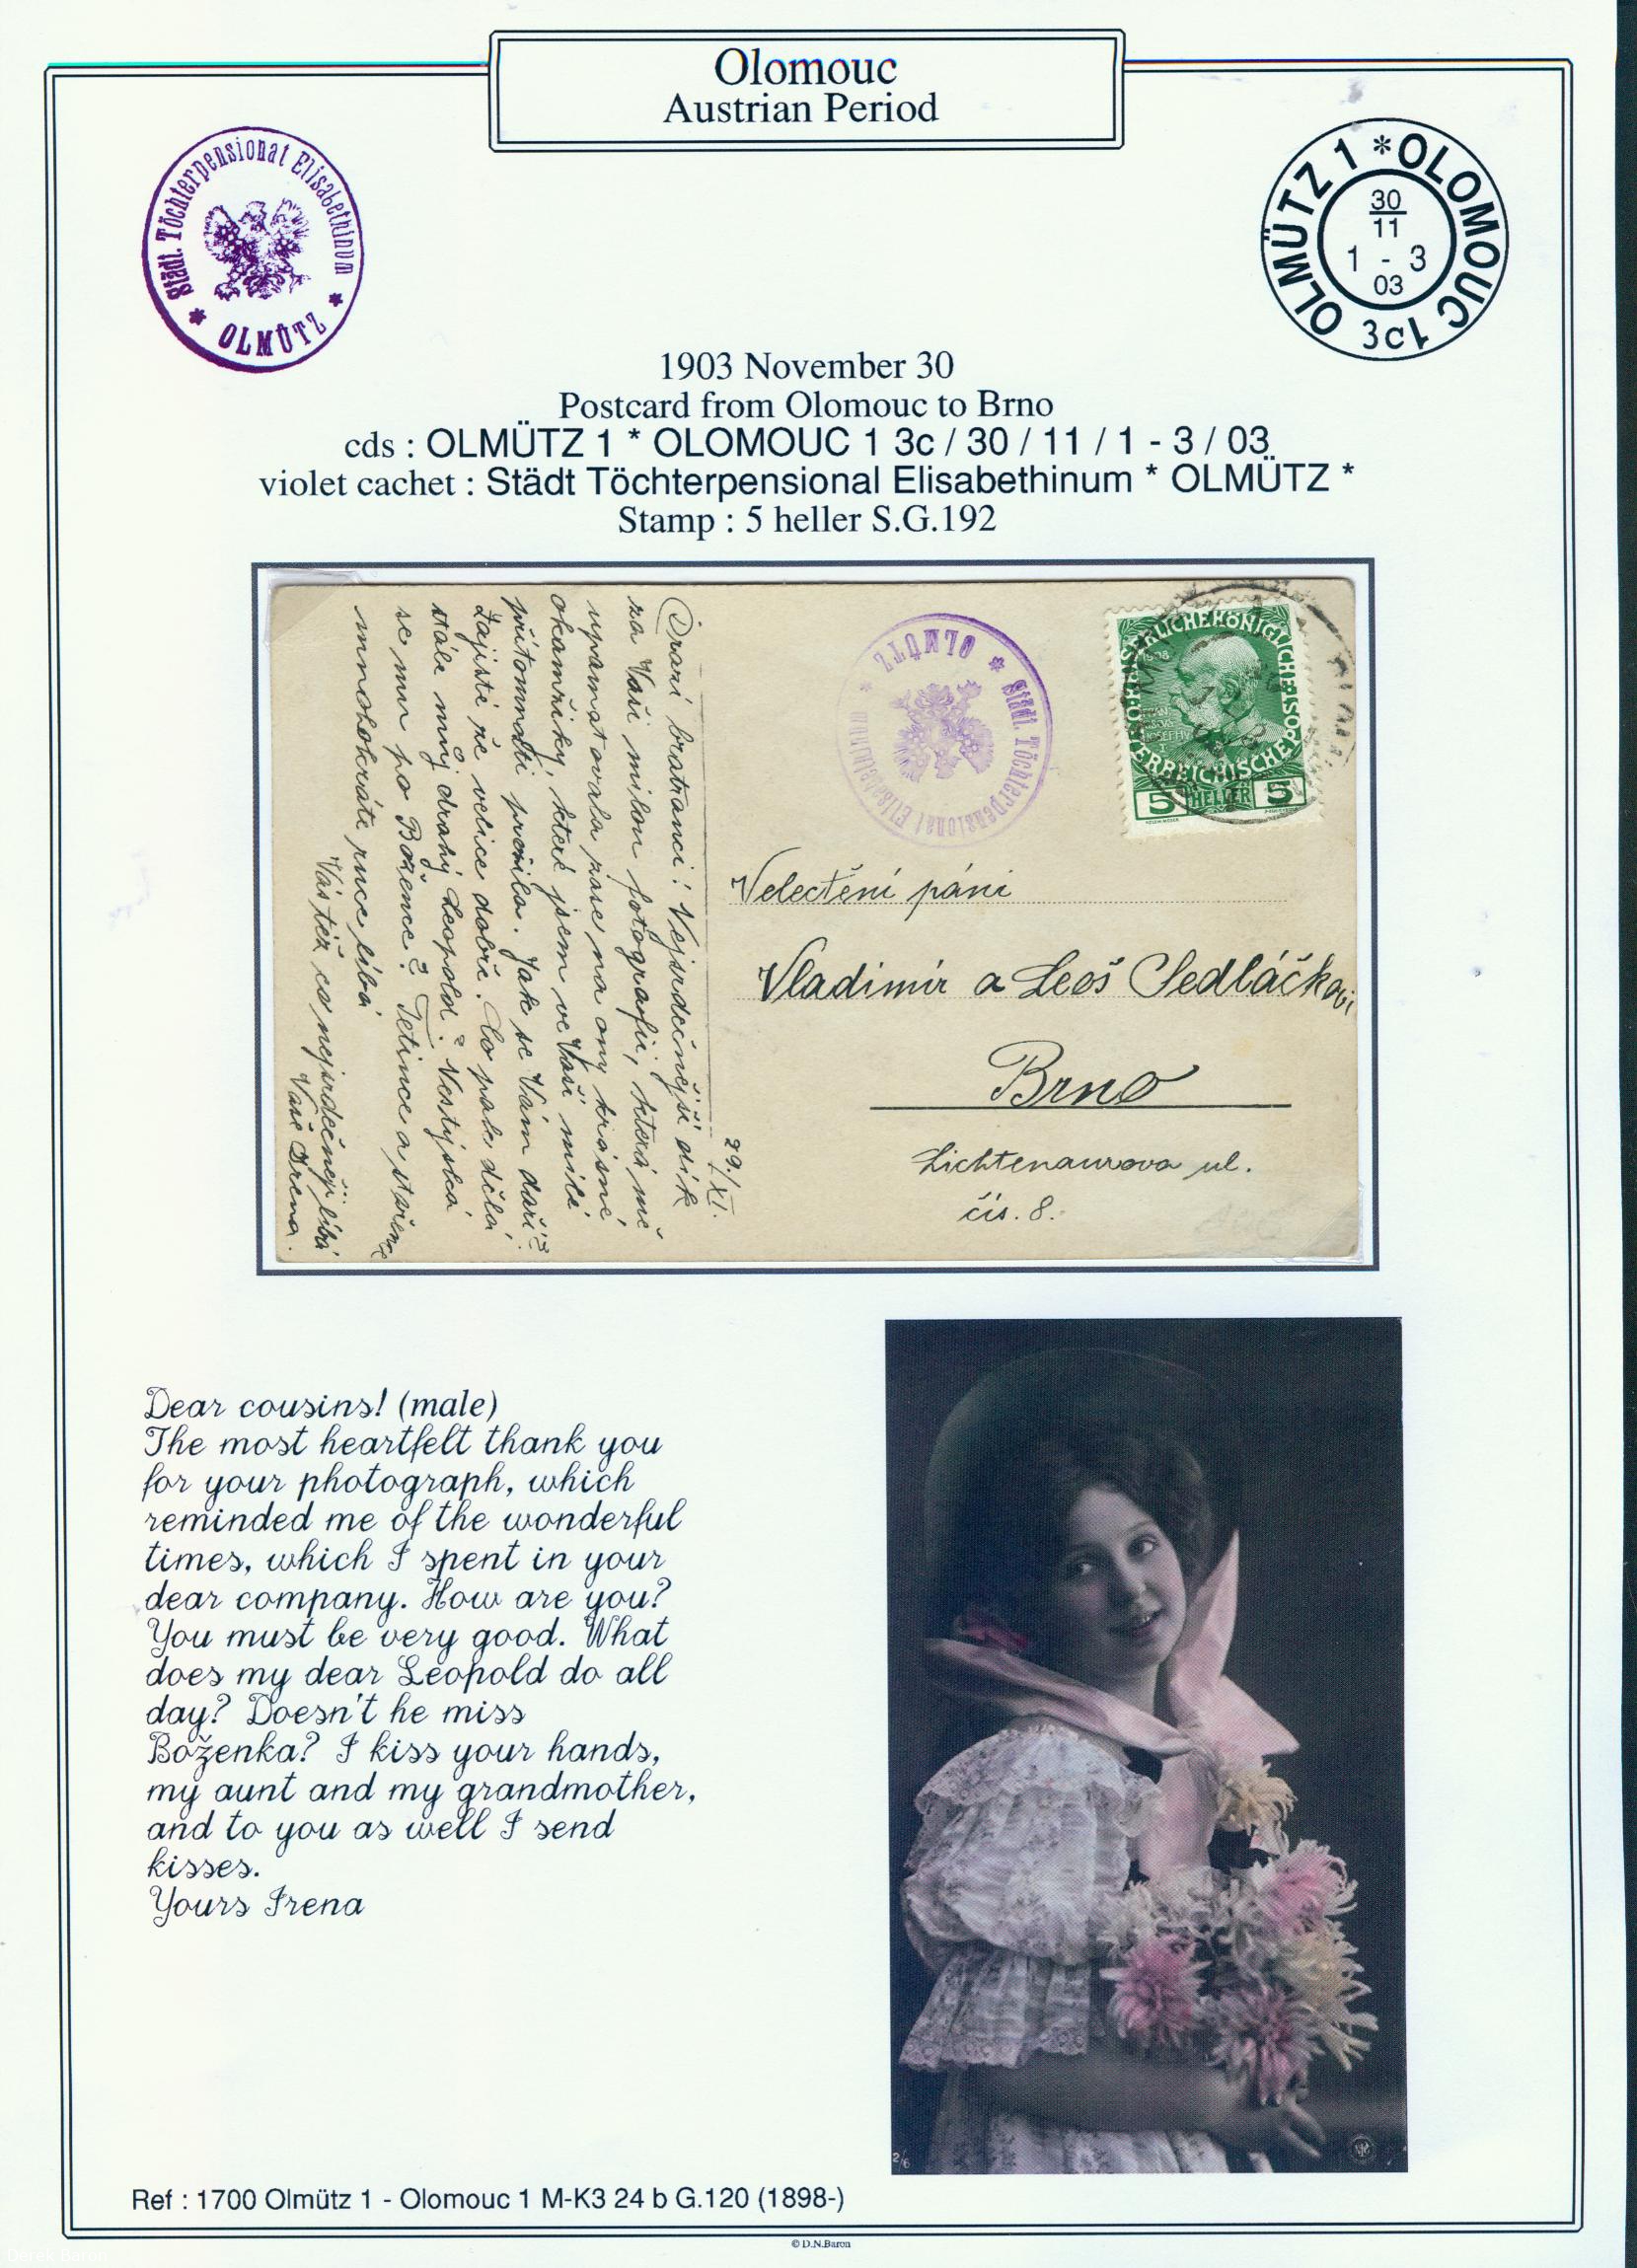 Olomouc
Austrian Period
Städt. Töchterpensionat Elisabethinum
* OLMÜTZ *
OLMÜTZ 1 * OLOMOUC 1
3c
30
11
1 - 3
03
1903 November 30
Postcard from Olomouc to Brno
cds : OLMÜTZ 1 * OLOMOUC 1 3c / 30 / 11 / 1 - 3 / 03
violet cachet : Städt Töchterpensional Elisabethinum * OLMÜTZ *
Stamp : 5 heller S.G.192
29./XI.
Drazí bratranci! Nejsrdečnější dík
za Vaši milou fotografii, která mě
upamatovala zase na ony krásné
okamžiky, které jsem ve Vaší milé
přítomnosti prožila. Jak se Vám daří?
Zajisté že velice dobře. Co pak dělá
stále můj drahý Leopold? Nestýská
se mu po Božence? Tetince a
mnohokráte ruce líbá
Vás též co nejsrdečněji líbá
Vaše Irena.
Städt. Töchterpensional Elisabethinum
* OLMÜTZ *
5 HELLER 5
Velectění páni
Vladimír a Leoš Sedláčkovi
Brno
Lichtenaurova ul.
čís. 8.
Dear cousins! (male)
The most heartfelt thank you
for your photograph, which
reminded me of the wonderful
times, which I spent in your
dear company. How are you?
You must be very good. What
does my dear Leopold do all
day? Doesn't he miss
Boženka? I kiss your hands,
my aunt and my grandmother,
and to you as well I send
kisses.
Yours Irena
2/6
Ref : 1700 Olmütz 1 - Olomouc 1 M-K3 24 b G.120 (1898-)
© D.N.Baron
Derek Baron